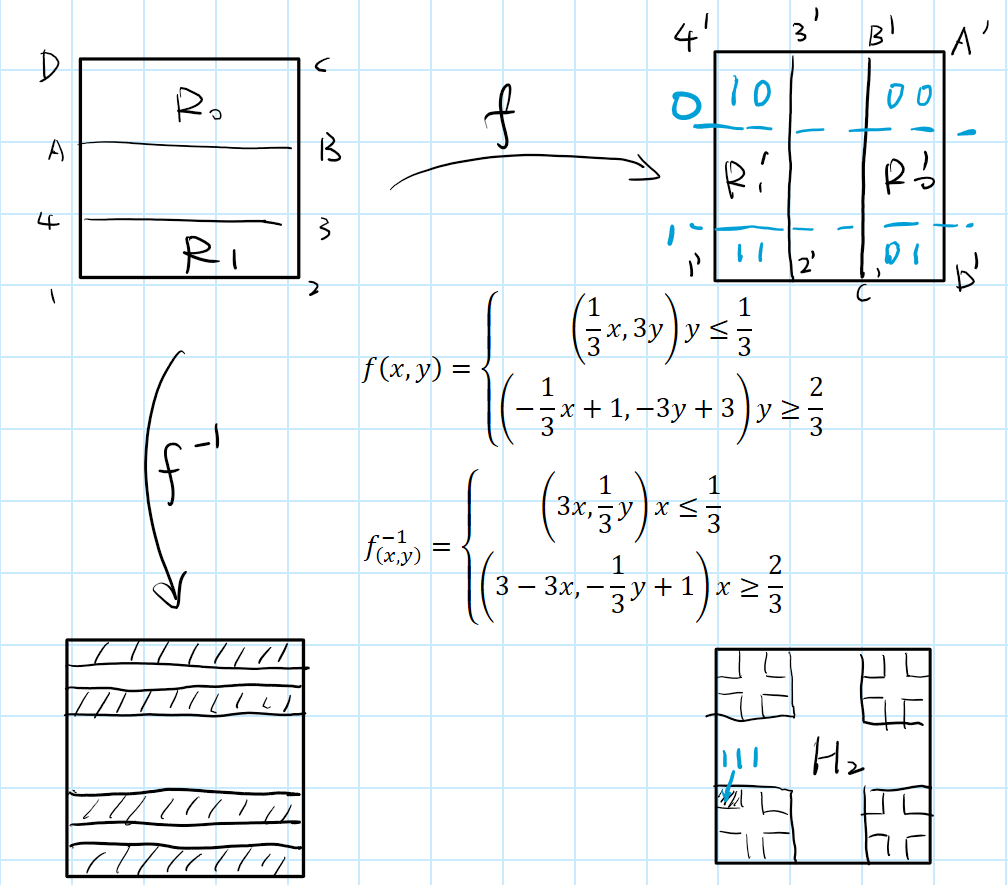 D C
R₀
A B
4 3
R1
1 2
f
4' 3' B' A'
0 10 00
R₁' R₀'
1 11 01
1' 2' C' D'
f(x,y) = { (1/3 x, 3y) y ≤ 1/3
(−1/3 x + 1, −3y + 3) y ≥ 2/3
f⁻¹
f⁻¹₍ₓ,ᵧ₎ = { (3x, 1/3 y) x ≤ 1/3
(3 − 3x, −1/3 y + 1) x ≥ 2/3
111
H₂